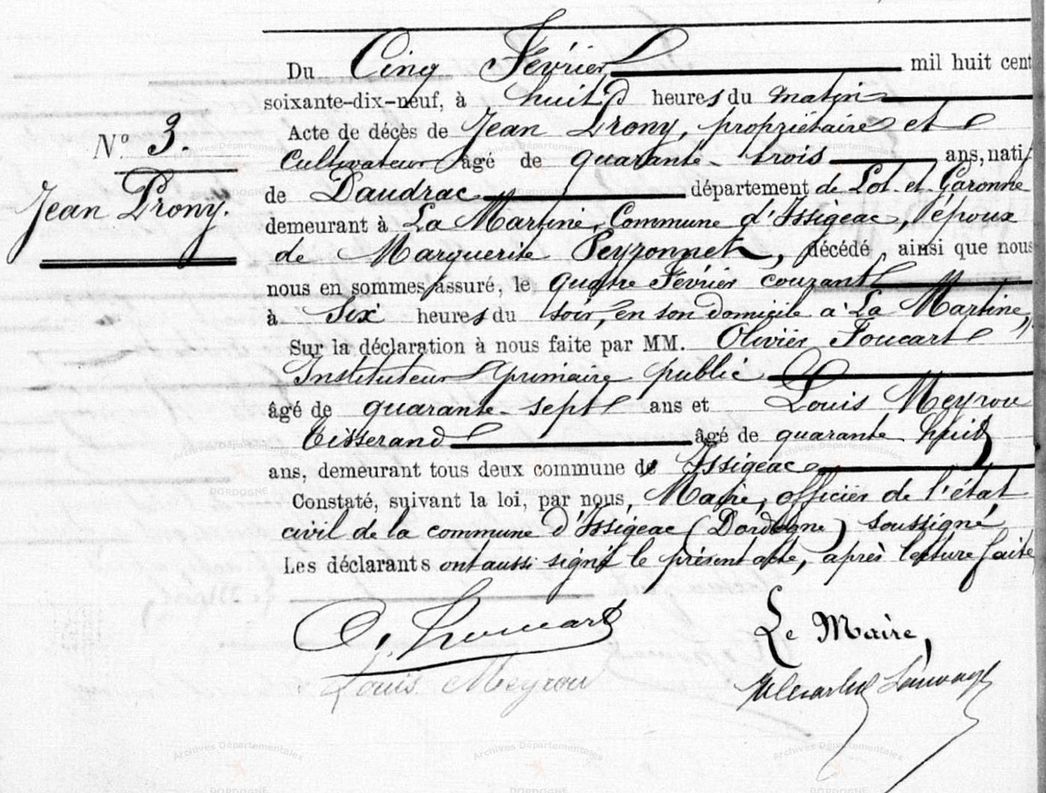 Du Cinq Février mil huit cent
soixante-dix-neuf, à huit heures du matin
Acte de décès de Jean Prony, propriétaire et
N° 3.
Cultivateur âgé de quarante-trois ans, nati
Jean Prony.
de Daudrac département de Lot et Garonne
demeurant à La Martine, Commune d'Issigeac, époux
de Marguerite Peyronnet, décédé, ainsi que nous
nous en sommes assuré, le quatre Février courant
à Six heures du soir, en son domicile à La Martine,
Sur la déclaration à nous faite par MM. Olivier Foucart
Instituteur primaire public
âgé de quarante-sept ans et Louis Meyrou
tisserand âgé de quarante huit
ans, demeurant tous deux commune de Issigeac
Constaté, suivant la loi, par nous, Maire, officier de l'état
civil de la commune d'Issigeac (Dordogne) soussigné
Les déclarants ont aussi signé le présent acte, après lecture faite
Le Maire,
Louis Meyrou
Archives Départementales
DORDOGNE